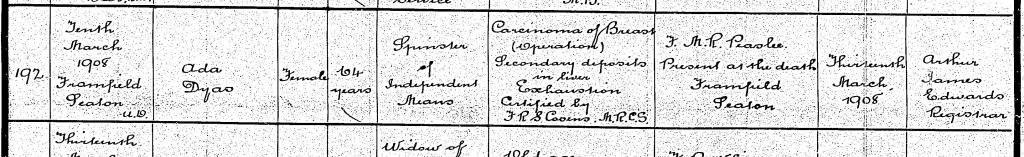 192.
Tenth
March
1908
Framfield
Seaton
U.D.
Ada
Dyas
Female
64
years
Spinster
of
Independent
Means
Carcinoma of Breast
(Operation)
Secondary deposits
in liver
Exhaustion
Certified by
M.R.C.S.
F. M. R.
Present at the death
Framfield
Seaton
Thirteenth
March,
1908
Arthur
James
Edwards
Registrar
Thirteenth
Widow of